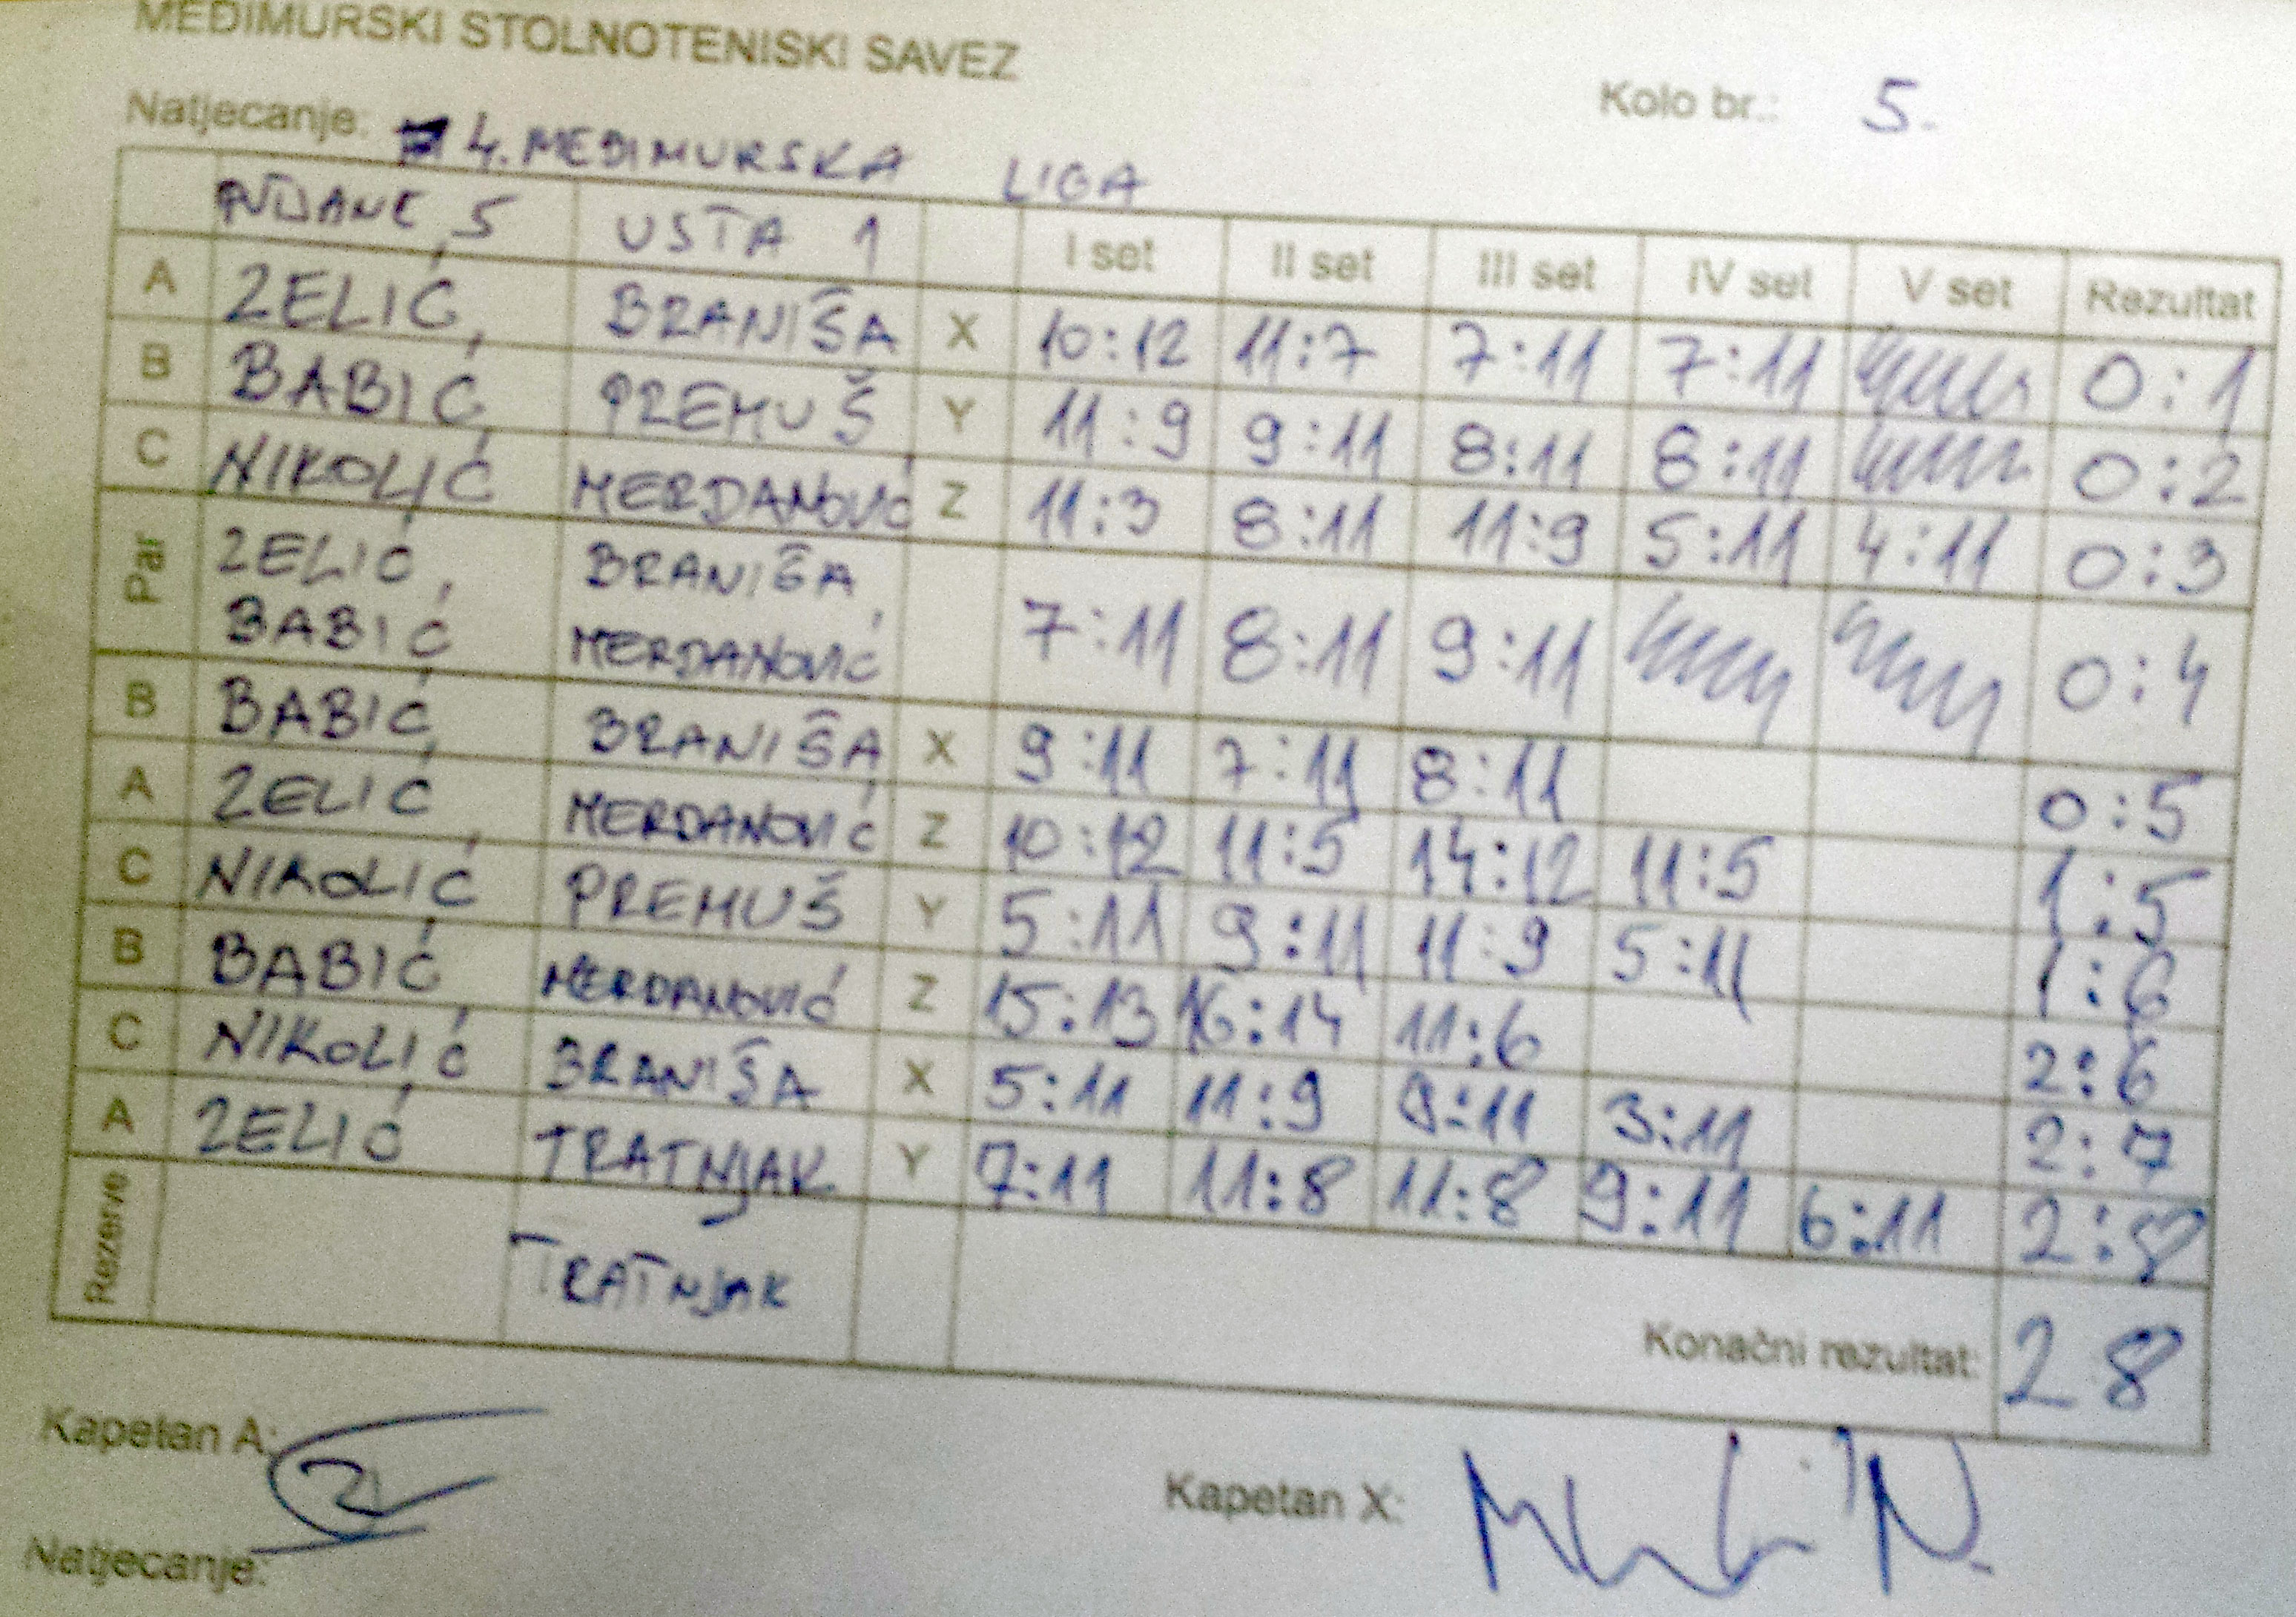 MEĐIMURSKI STOLNOTENISKI SAVEZ
Natjecanje: 4. MEĐIMURSKA LIGA Kolo br.: 5.
5 USTA 1 I set II set III set IV set V set Rezultat
A ZELIĆ BRANIŠA X 10:12 11:7 7:11 7:11 0:1
B BABIĆ PREMUŠ Y 11:9 9:11 8:11 8:11 0:2
C NIKOLIĆ MERDANOVIĆ Z 11:3 8:11 11:9 5:11 4:11 0:3
Par ZELIĆ, BRANIŠA,
BABIĆ MERDANOVIĆ 7:11 8:11 9:11 0:4
B BABIĆ BRANIŠA X 9:11 7:11 8:11 0:5
A ZELIĆ MERDANOVIĆ Z 10:12 11:5 14:12 11:5 1:5
C NIKOLIĆ PREMUŠ Y 5:11 9:11 11:9 5:11 1:6
B BABIĆ MERDANOVIĆ Z 15:13 16:14 11:6 2:6
C NIKOLIĆ BRANIŠA X 5:11 11:9 9:11 3:11 2:7
A ZELIĆ TRATNJAK Y 7:11 11:8 11:8 9:11 6:11 2:8
Rezerve TRATNJAK
Konačni rezultat: 2 8
Kapetan A:
Kapetan X:
Natjecanje: